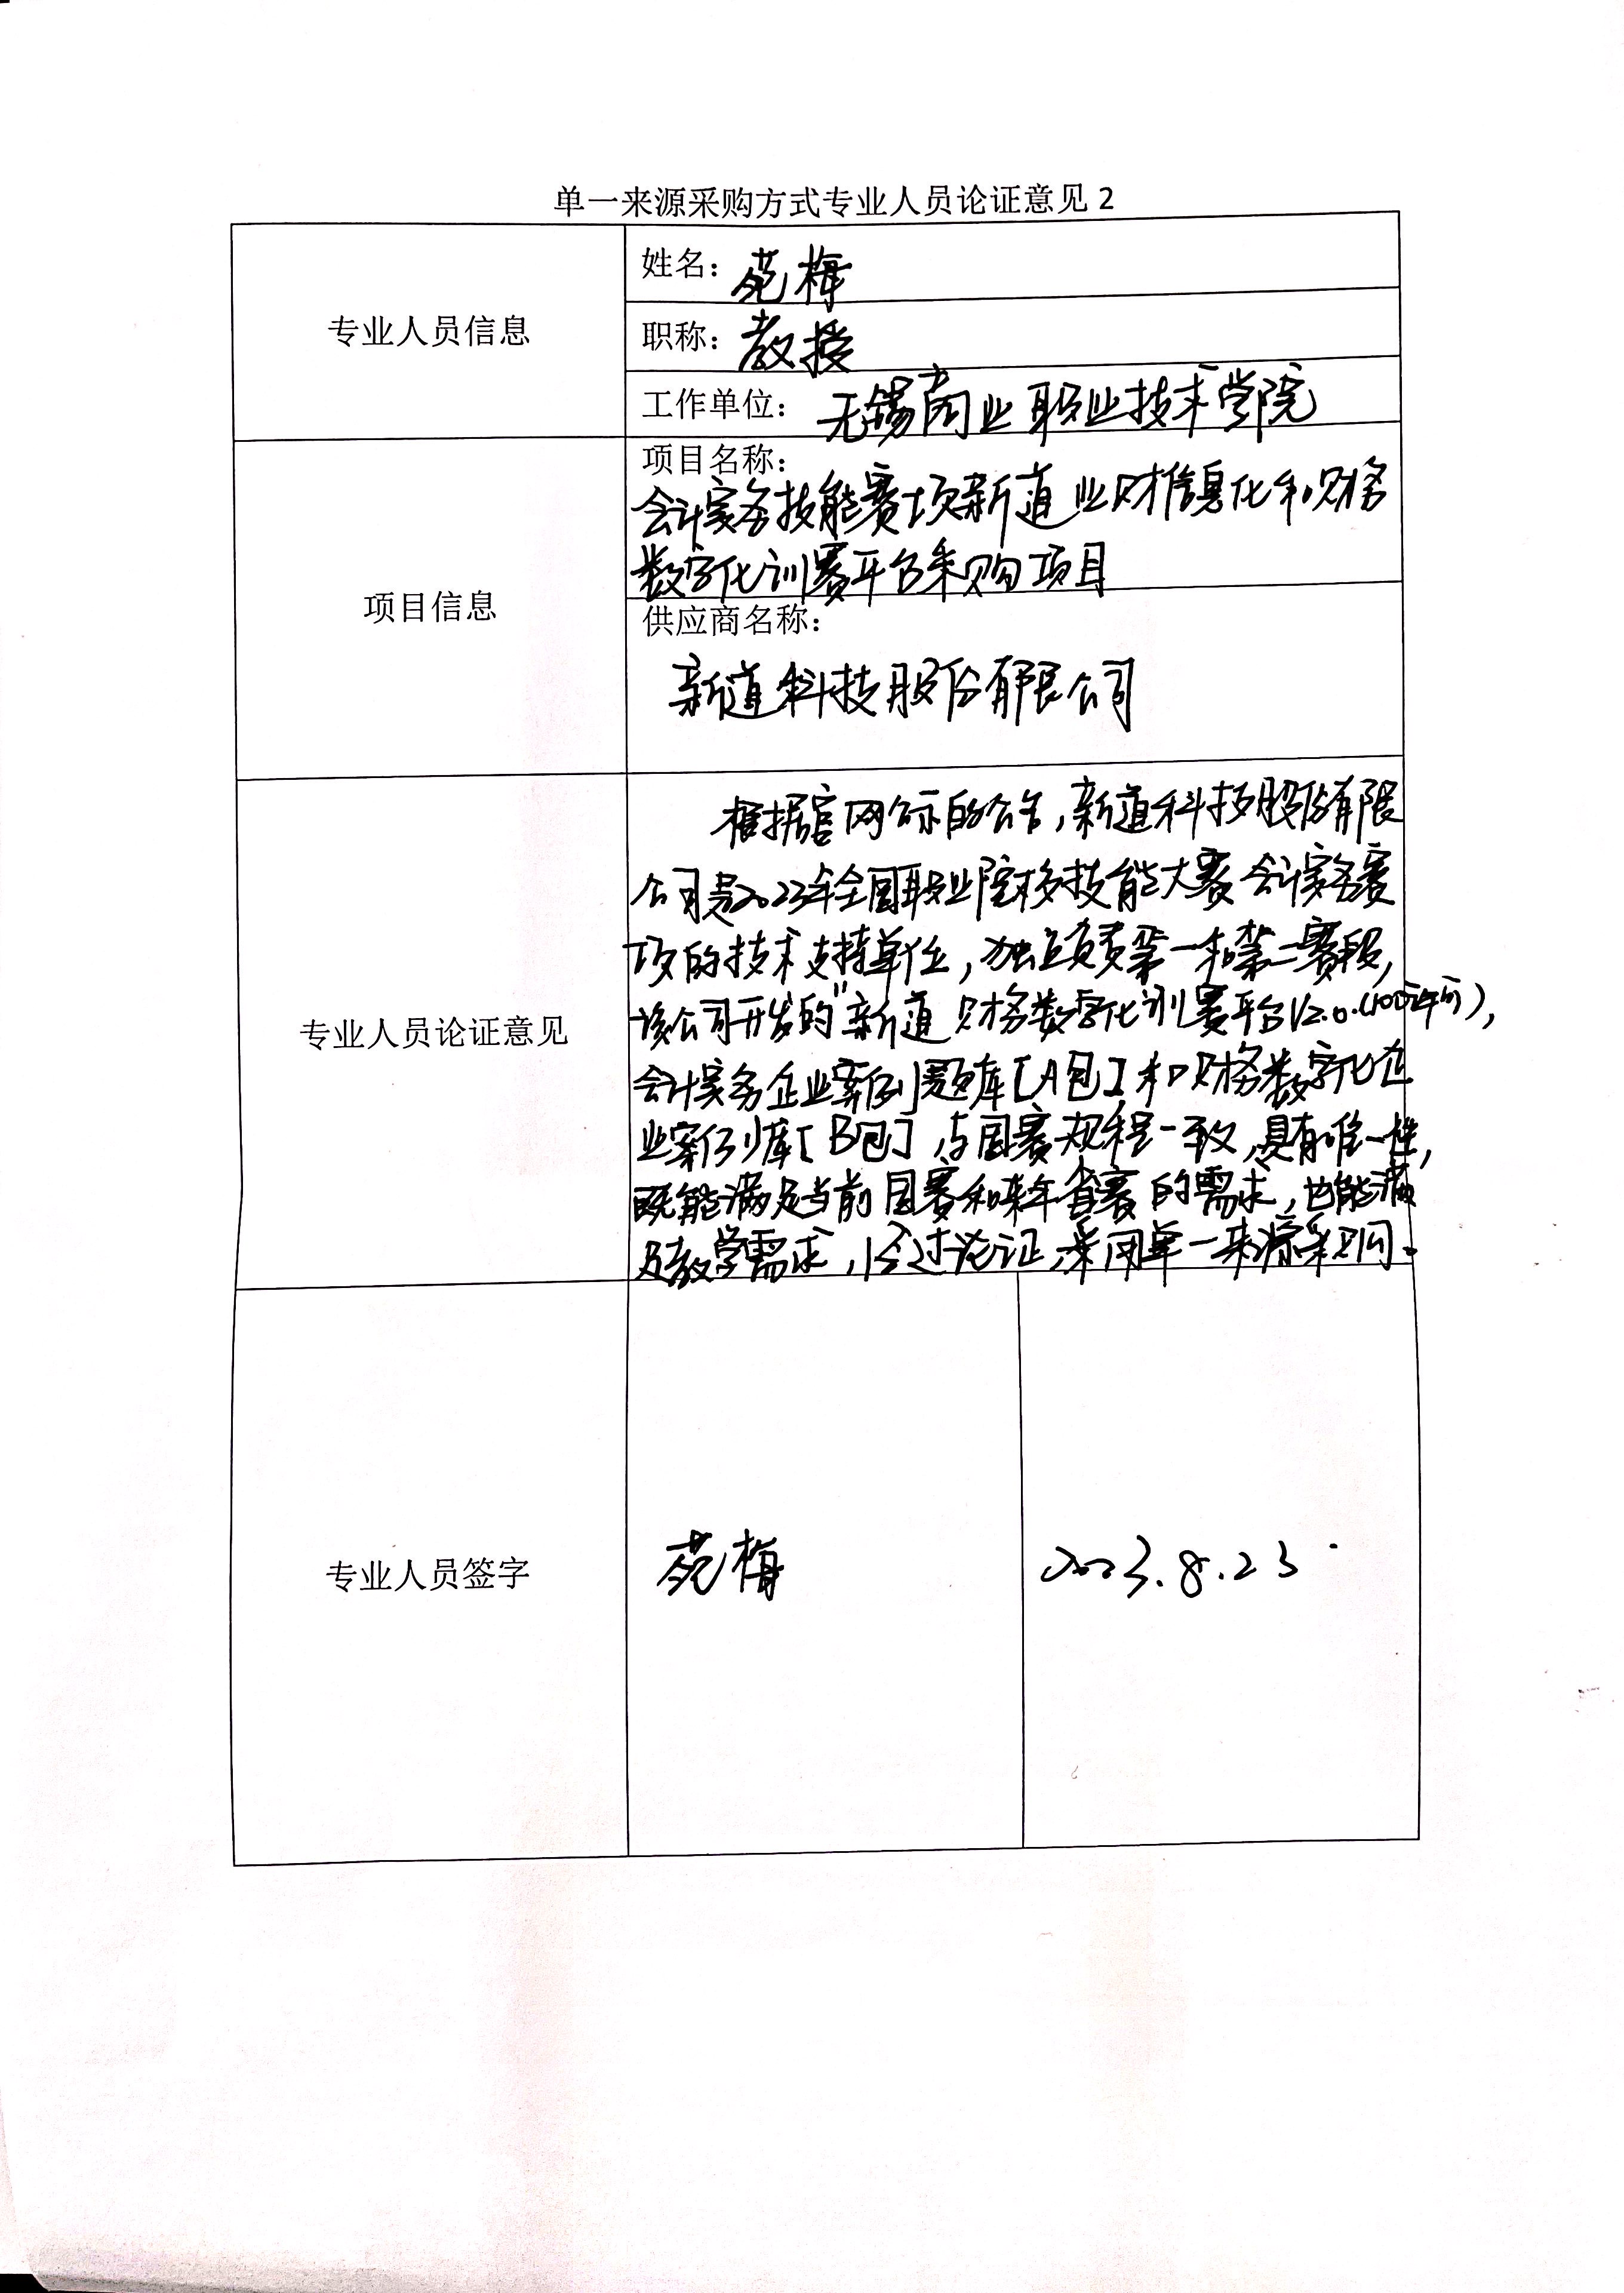 单一来源采购方式专业人员论证意见 2
专业人员信息
姓名：苑梅
职称：教授
工作单位：无锡商业职业技术学院
项目信息
项目名称：
会计实务技能赛项新道业财信息化和财务
数字化训赛平台采购项目
供应商名称：
新道科技股份有限公司
专业人员论证意见
根据官网公示的公告，新道科技股份有限
公司是2023年全国职业院校技能大赛会计实务赛
项的技术支持单位，独立负责第一和第二赛段，
该公司开发的"新道财务数字化训赛平台V2.0.(100许可)，
会计实务企业案例题库[A包]和财务数字化企
业案例库[B包]，与国赛规程一致，具有唯一性，
既能满足当前国赛和来年省赛的需求，也能满
足教学需求，经过论证，采用单一来源采购。
专业人员签字
苑梅
2023.8.23